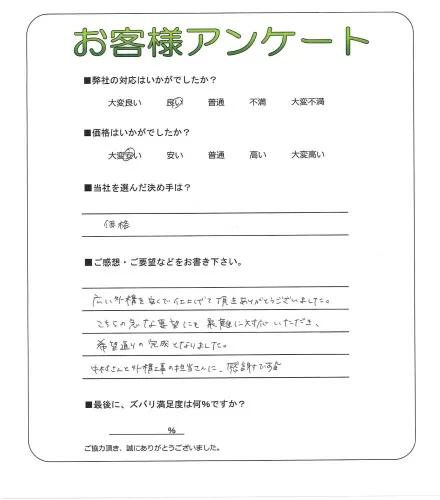 お客様アンケート
■弊社の対応はいかがでしたか？
大変良い 良い 普通 不満 大変不満
■価格はいかがでしたか？
大変安い 安い 普通 高い 大変高い
■当社を選んだ決め手は？
価格
■ご感想・ご要望などをお書き下さい。
広い外構を安く仕上げて頂きありがとうございました。
こちらの急な要望にも 対応いただき、
希望通りの完成となりました。
中村さんと外構工事の担当さんに、感謝です
■最後に、ズバリ満足度は何％ですか？
％
ご協力頂き、誠にありがとうございました。